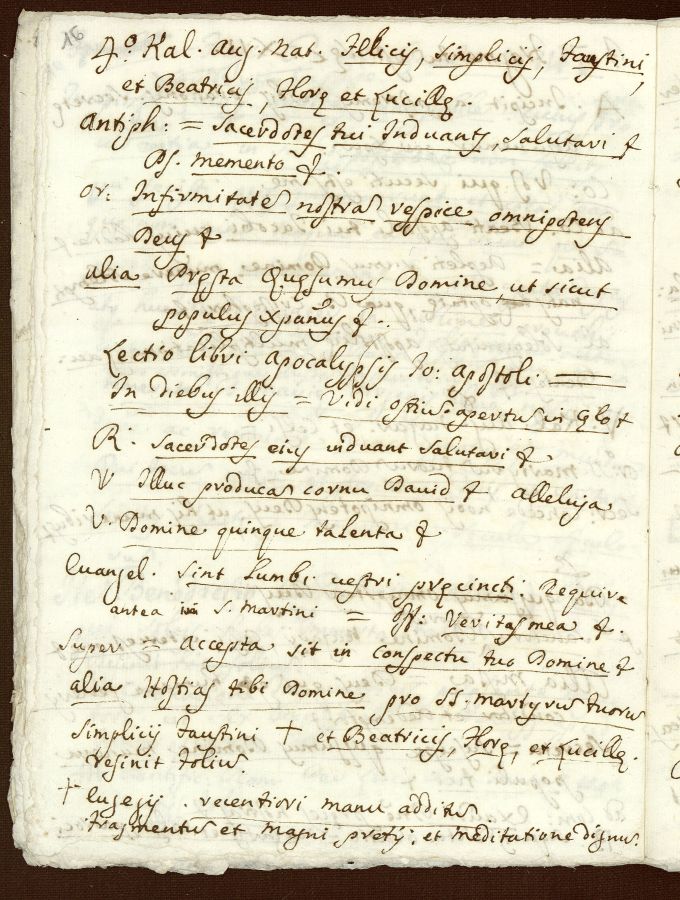 16
4º Kal. Aug. Nat. Felicis, Simplicij, Faustini,
et Beatricis, Florę et Lucillę.
Antiph: = Sacerdotes tui Induant, Salutari &
Ps. memento &.
or: Infirmitatē nostrā respice omnipotens
Deus &
alia Pręsta Quęsumus Domine, ut sicut
populus xpanus &.
Lectio libri Apocalypsis Io: apostoli
In Diebus illis = Vidi ostiū apertū in Cęlo &
R. Sacerdotes eius induant salutari &.
V Illuc producam cornu David & alleluja
V. Domine quinque talenta &
Evangel. Sint Lumbi vestri pręcincti; Require
antea in S. Martini = Off: Veritas mea &
Super = Accepta sit in conspectu tuo Domine &
alia Hostias tibi Domine pro SS. martyrū tuorū
Simplicij Faustini † et Beatricis, Florę, et Lucillę.
desinit foliū.
† recentiori manu additū
fragmentū et magni pretij, et meditatione dignū.